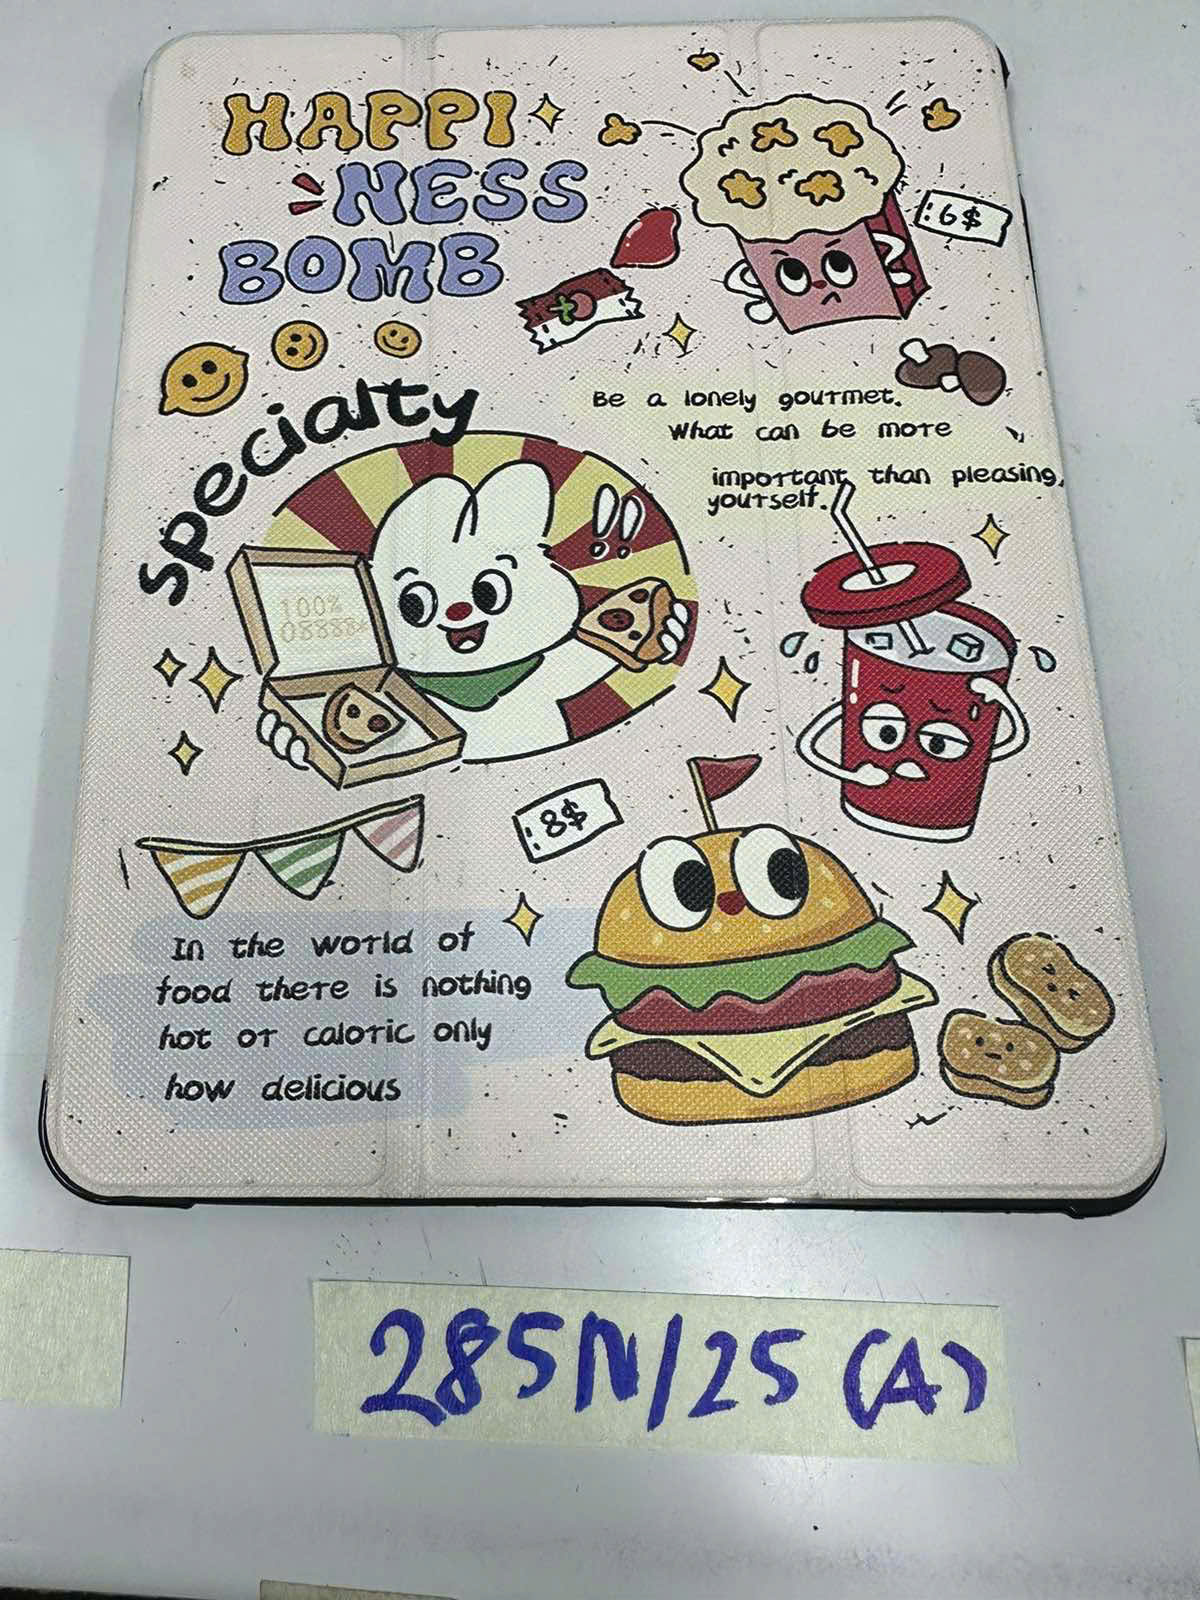 HAPPI
NESS
BOMB
6$
Specialty
Be a lonely gourmet.
What can be more
important than pleasing,
yourself.
100%
8$
In the world of
food there is nothing
hot or caloric only
how delicious
285N/25 (A)